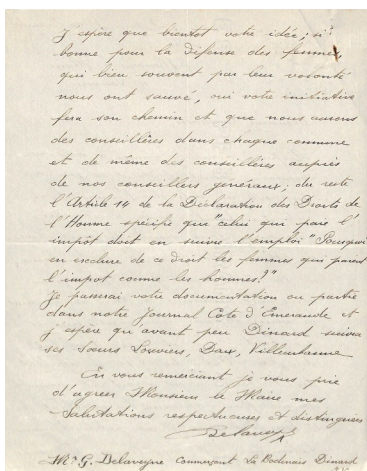 J'espère que bientot votre idée, si
bonne pour la défense des femmes,
qui bien souvent par leur volonté
nous ont sauvé, oui votre initiative
fera son chemin et que nous aurons
des conseillères dans chaque commune
et de même des conseillères auprès
de nos conseillers généraux; du reste
l'Article 14 de la Déclaration des Droits de
l'Homme spécifie que "celui qui paie l'
impôt doit en suivre l'emploi" Pourquoi
en exclure de ce droit les femmes qui paient
l'impot comme les hommes?"
Je passerai votre documentation ou partie
dans notre Journal Cote d'Emeraude et
j'espère qu'avant peu Dinard suivra
ses Soeurs Louviers, Dax, Villeurbanne
En vous remerciant je vous prie
d'agréer Monsieur le Maire mes
Salutations respectueuses et distinguées
Delaveyne
Mr G. Delaveyne Commerçant Dinard